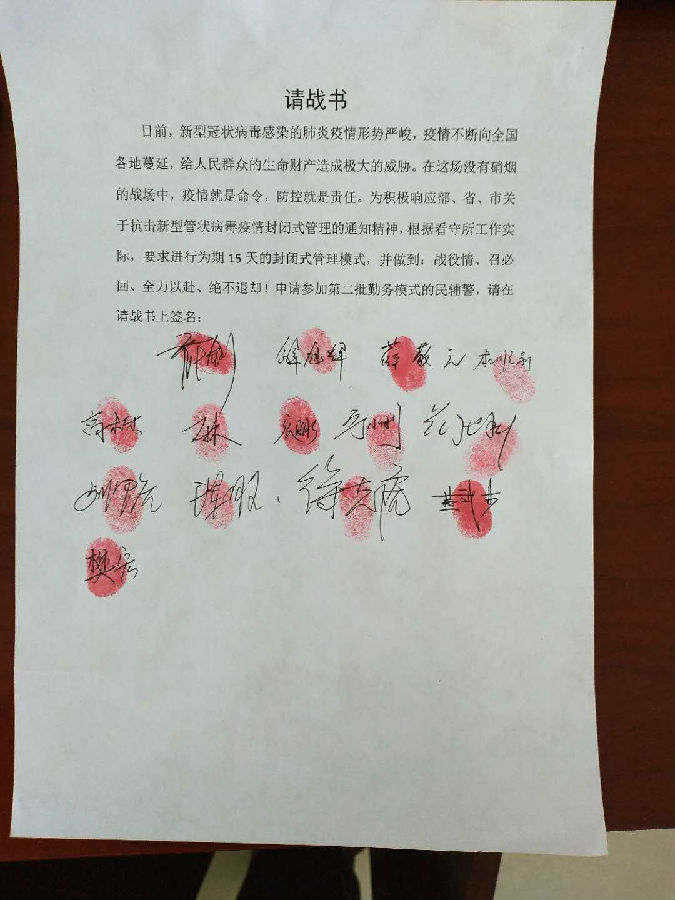 请战书
日前，新型冠状病毒感染的肺炎疫情形势严峻，疫情不断向全国
各地蔓延，给人民群众的生命财产造成极大的威胁。在这场没有硝烟
的战场中，疫情就是命令，防控就是责任。为积极响应部、省、市关
于抗击新型管状病毒疫情封闭式管理的通知精神，根据看守所工作实
际，要求进行为期 15 天的封闭式管理模式，并做到：战役情、召必
回、全力以赴、绝不退却！申请参加第二批勤务模式的民辅警，请在
请战书上签名：